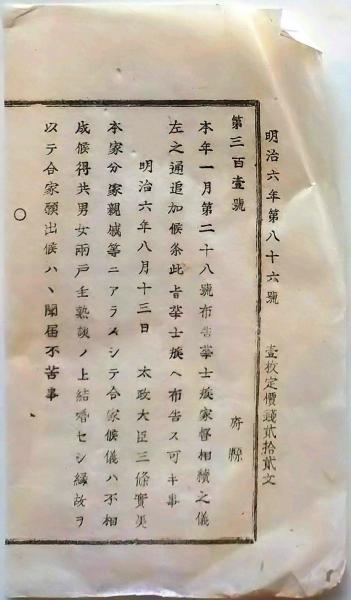 明治六年第八十六號　壹枚定價錢貳拾貳文
第三百壹號
府縣
本年一月第二十八號布告華士族家督相續之儀
左之通追加候条此旨華士族ヘ布告ス可キ事
明治六年八月十三日　太政大臣三條實美
本家分家親戚等ニアラスシテ合家候儀ハ不相
成候得共男女兩戸主熟談ノ上結婚セシ縁故ヲ
以テ合家願出候ハヽ聞届不苦事
○